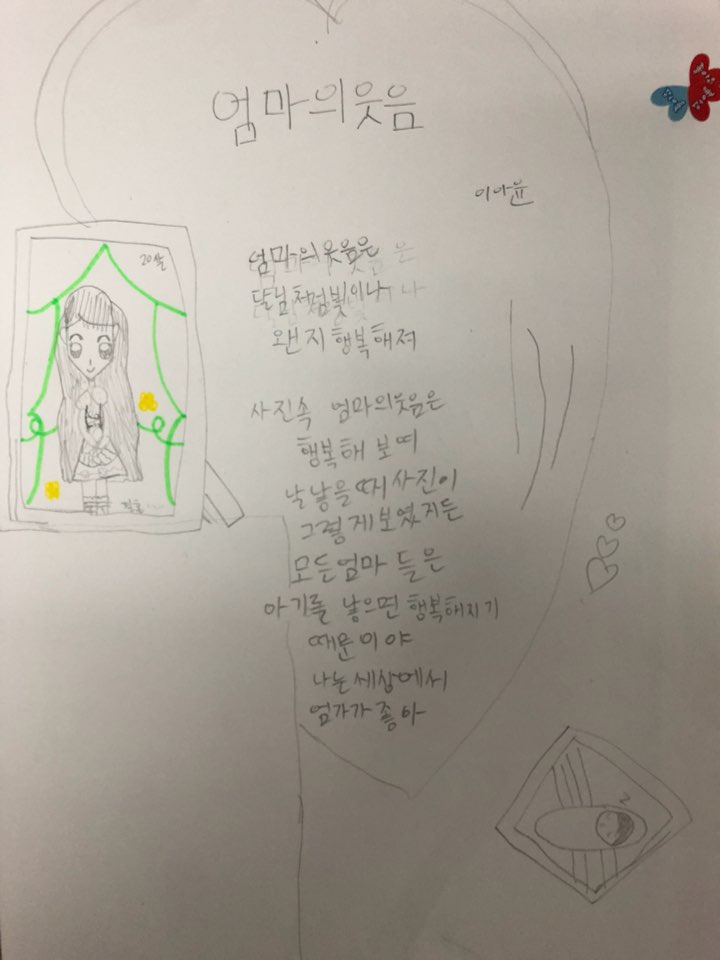 엄마의웃음
이아윤
20살
엄마의웃음은
달님처럼빛이나
왠지행복해져
사진속 엄마의웃음은
행복해 보여
날낳을때사진이
그렇게보였지든
모든엄마 들은
아기를 낳으면 행복해지기
때문이야
나는세상에서
엄가가좋아
z